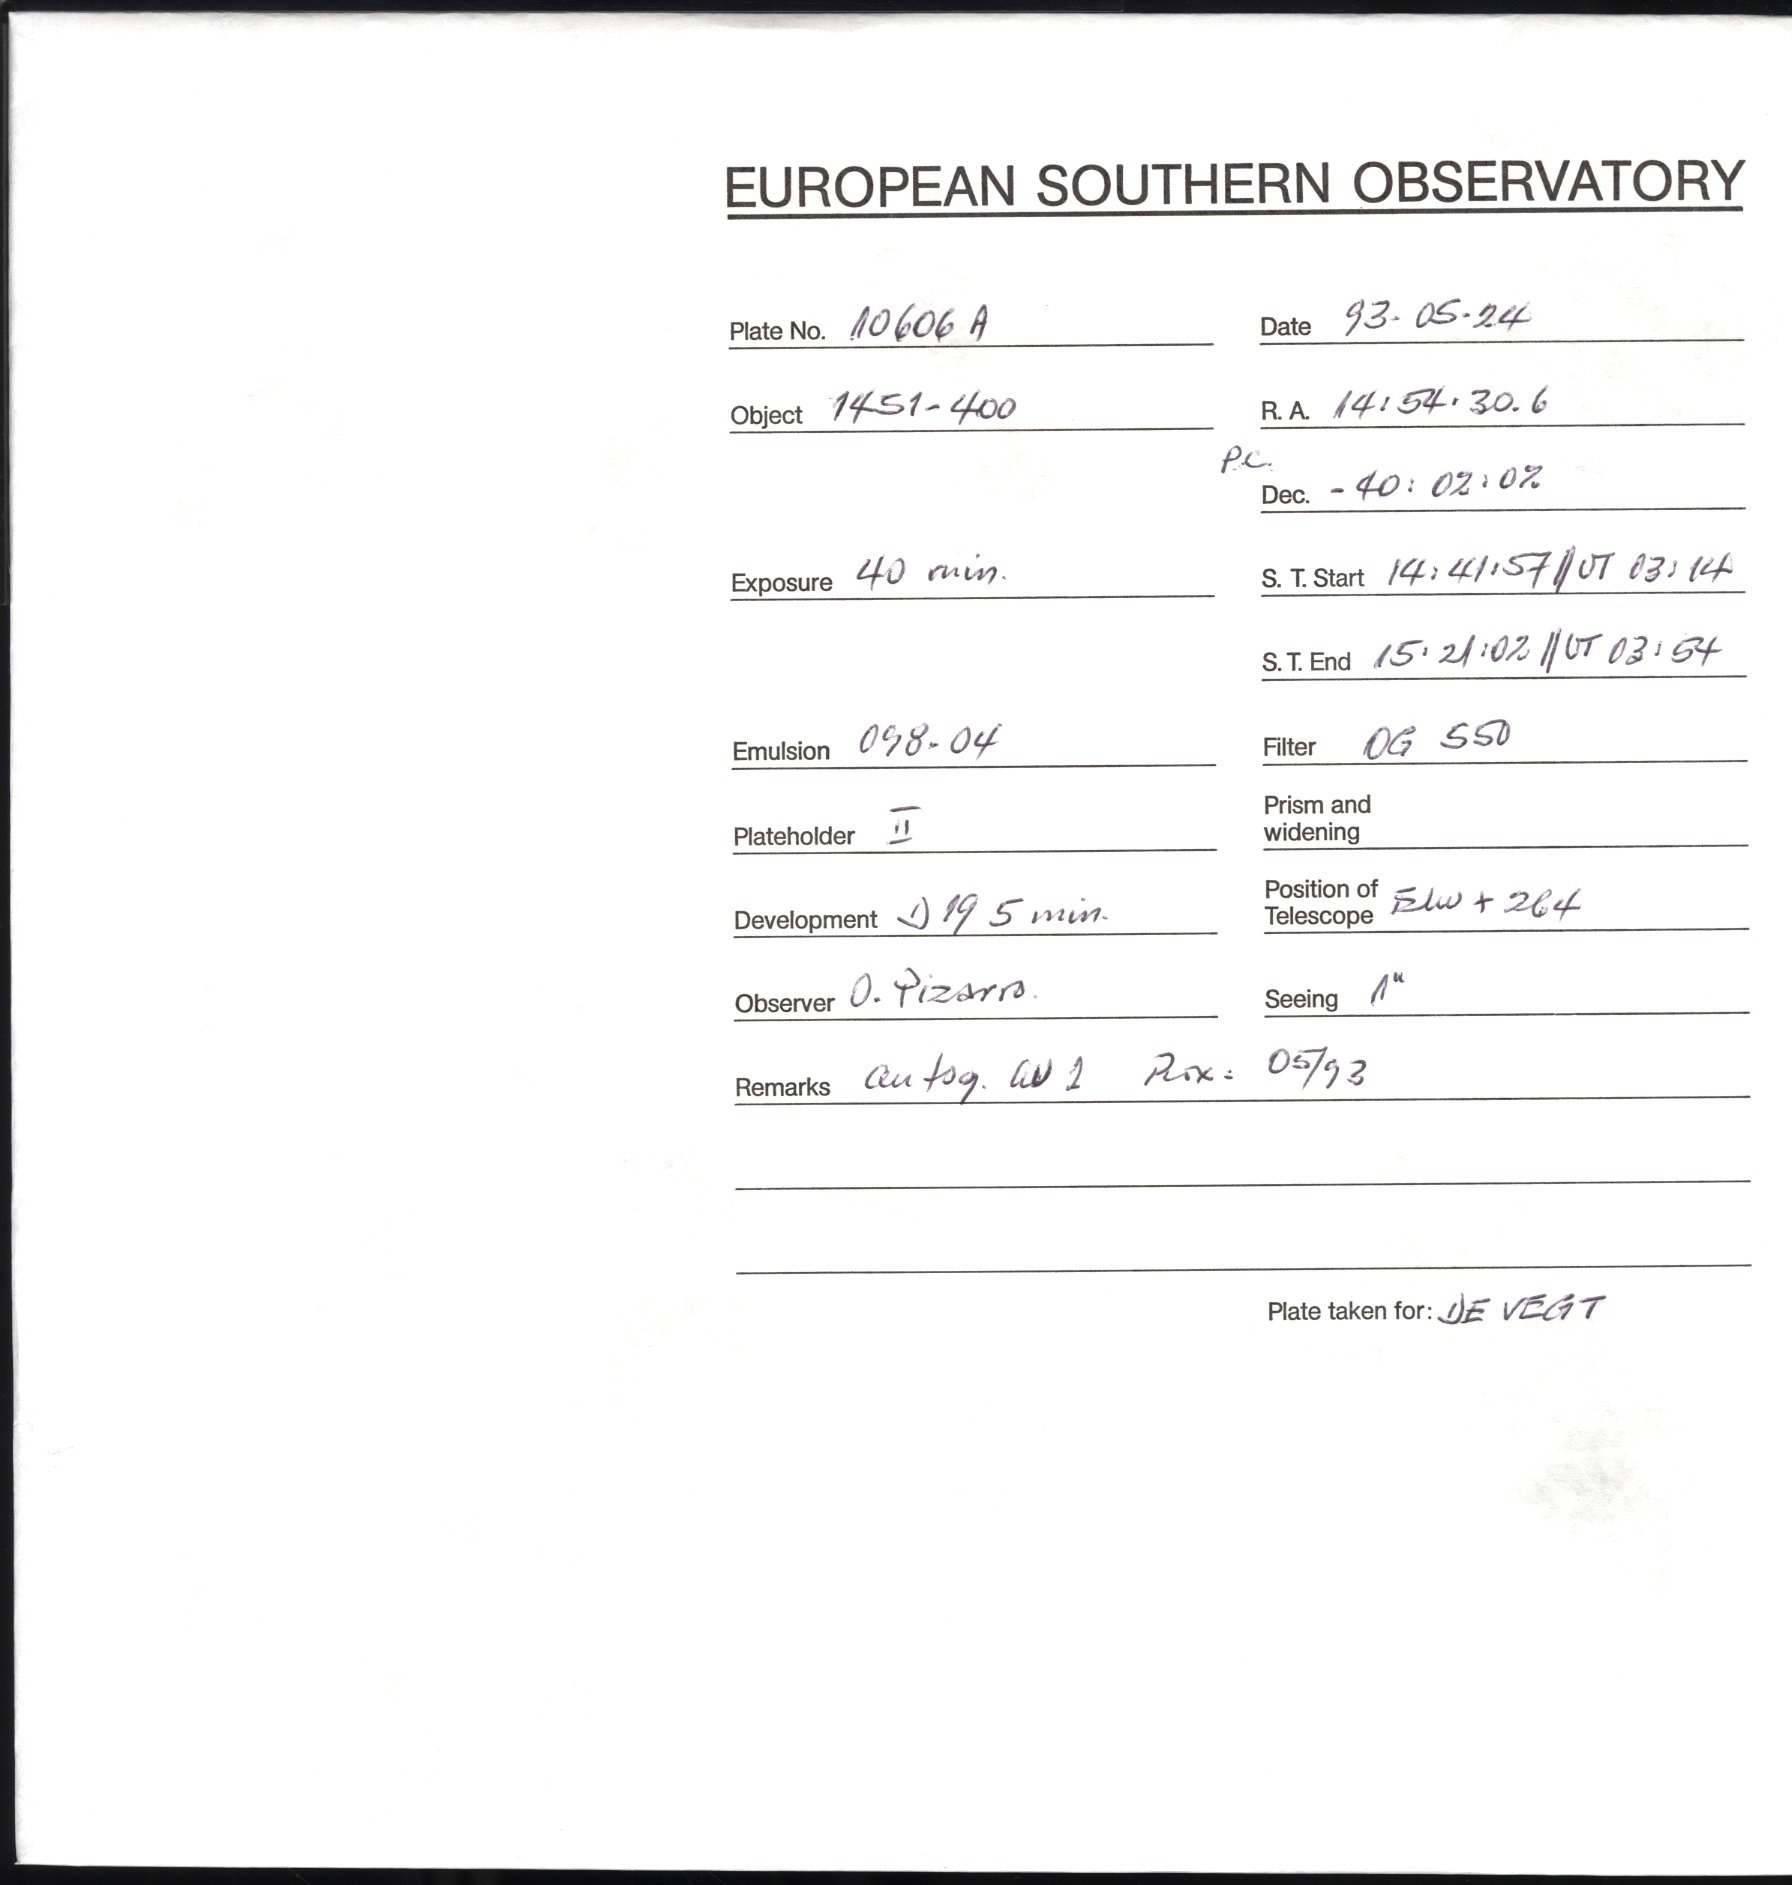 EUROPEAN SOUTHERN OBSERVATORY
Plate No. 10606 A Date 93-05-24
Object 1451-400 R. A. 14:54:30.6
P.C.
Dec. -40:02:02
Exposure 40 min. S. T. Start 14:41:57 // UT 03:14
S. T. End 15:21:02 // UT 03:54
Emulsion 098-04 Filter OG 550
Plateholder II Prism and
widening
Development D 19 5 min. Position of
Telescope + 264
Observer O. Pizarro. Seeing 1"
Remarks autog. 05/93
Plate taken for: DE VEGT